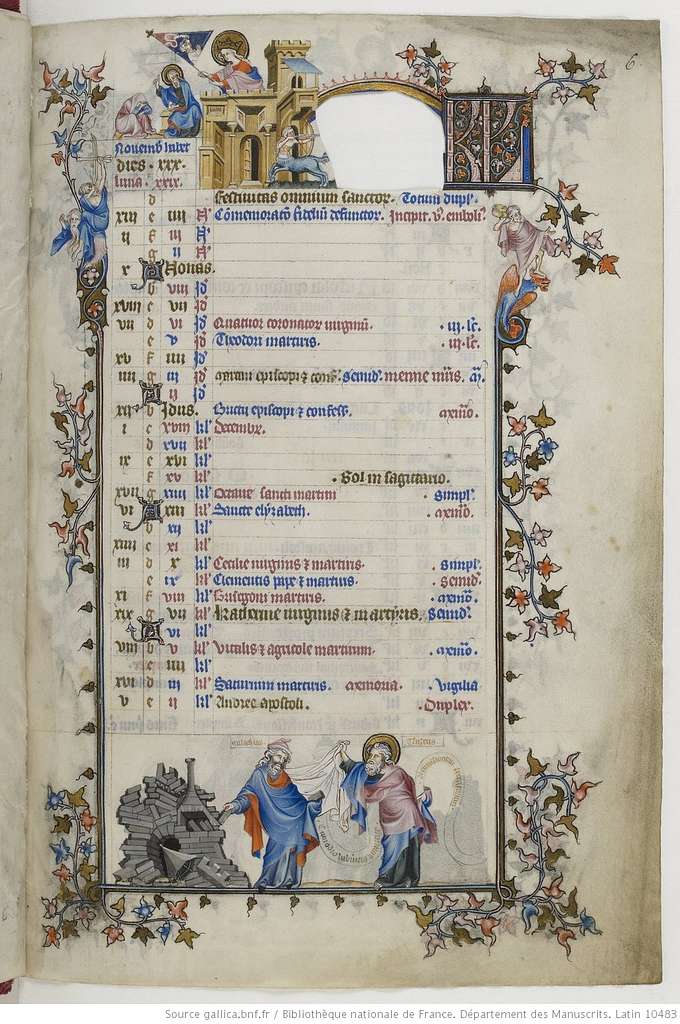 6
Nouemb' habet
dies . xxx.
luna . xxix.
KL
d Festiuitas omnium sanctor. Totum dupl'.
xiii e iiii N' Com̄emoracō fidelium defunctor. Incipit
ii f iii N'
g ii N'
x A Nonas.
b viii Id'
xviii c vii Id'
vii d vi Id' Quatuor coronator . iii. lc̄.
e v Id' Theodori martiris. . iii. lc̄.
xv f iiii Id'
iiii g iii Id' Martini episcopi & conf'. semid'.
A ii Id'
xii b Idus. Bricii episcopi & confess'.
i c xviii kl' Decembr.
d xvii kl'
ix e xvi kl'
f xv kl' . Sol in sagitario.
xvii g xiiii kl' Octaue sancti martini . simpl'.
vi A xiii kl' Sancte elyzabeth.
b xii kl'
xiiii c xi kl'
iii d x kl' Cecilie uirginis & martiris. . simpl'.
e ix kl' Clementis pape & martiris. . semid'.
xi f viii kl' Grisogoni martiris.
xix g vii kl' Katherine uirginis & martyris. semid'.
A vi kl'
viii b v kl' Vitalis & agricole martirum.
c iiii kl'
xvi d iii kl' Saturnini martiris. . Vigilia
v e ii kl' Andree apostoli. . Duplex.
Source gallica.bnf.fr / Bibliothèque nationale de France. Département des Manuscrits. Latin 10483